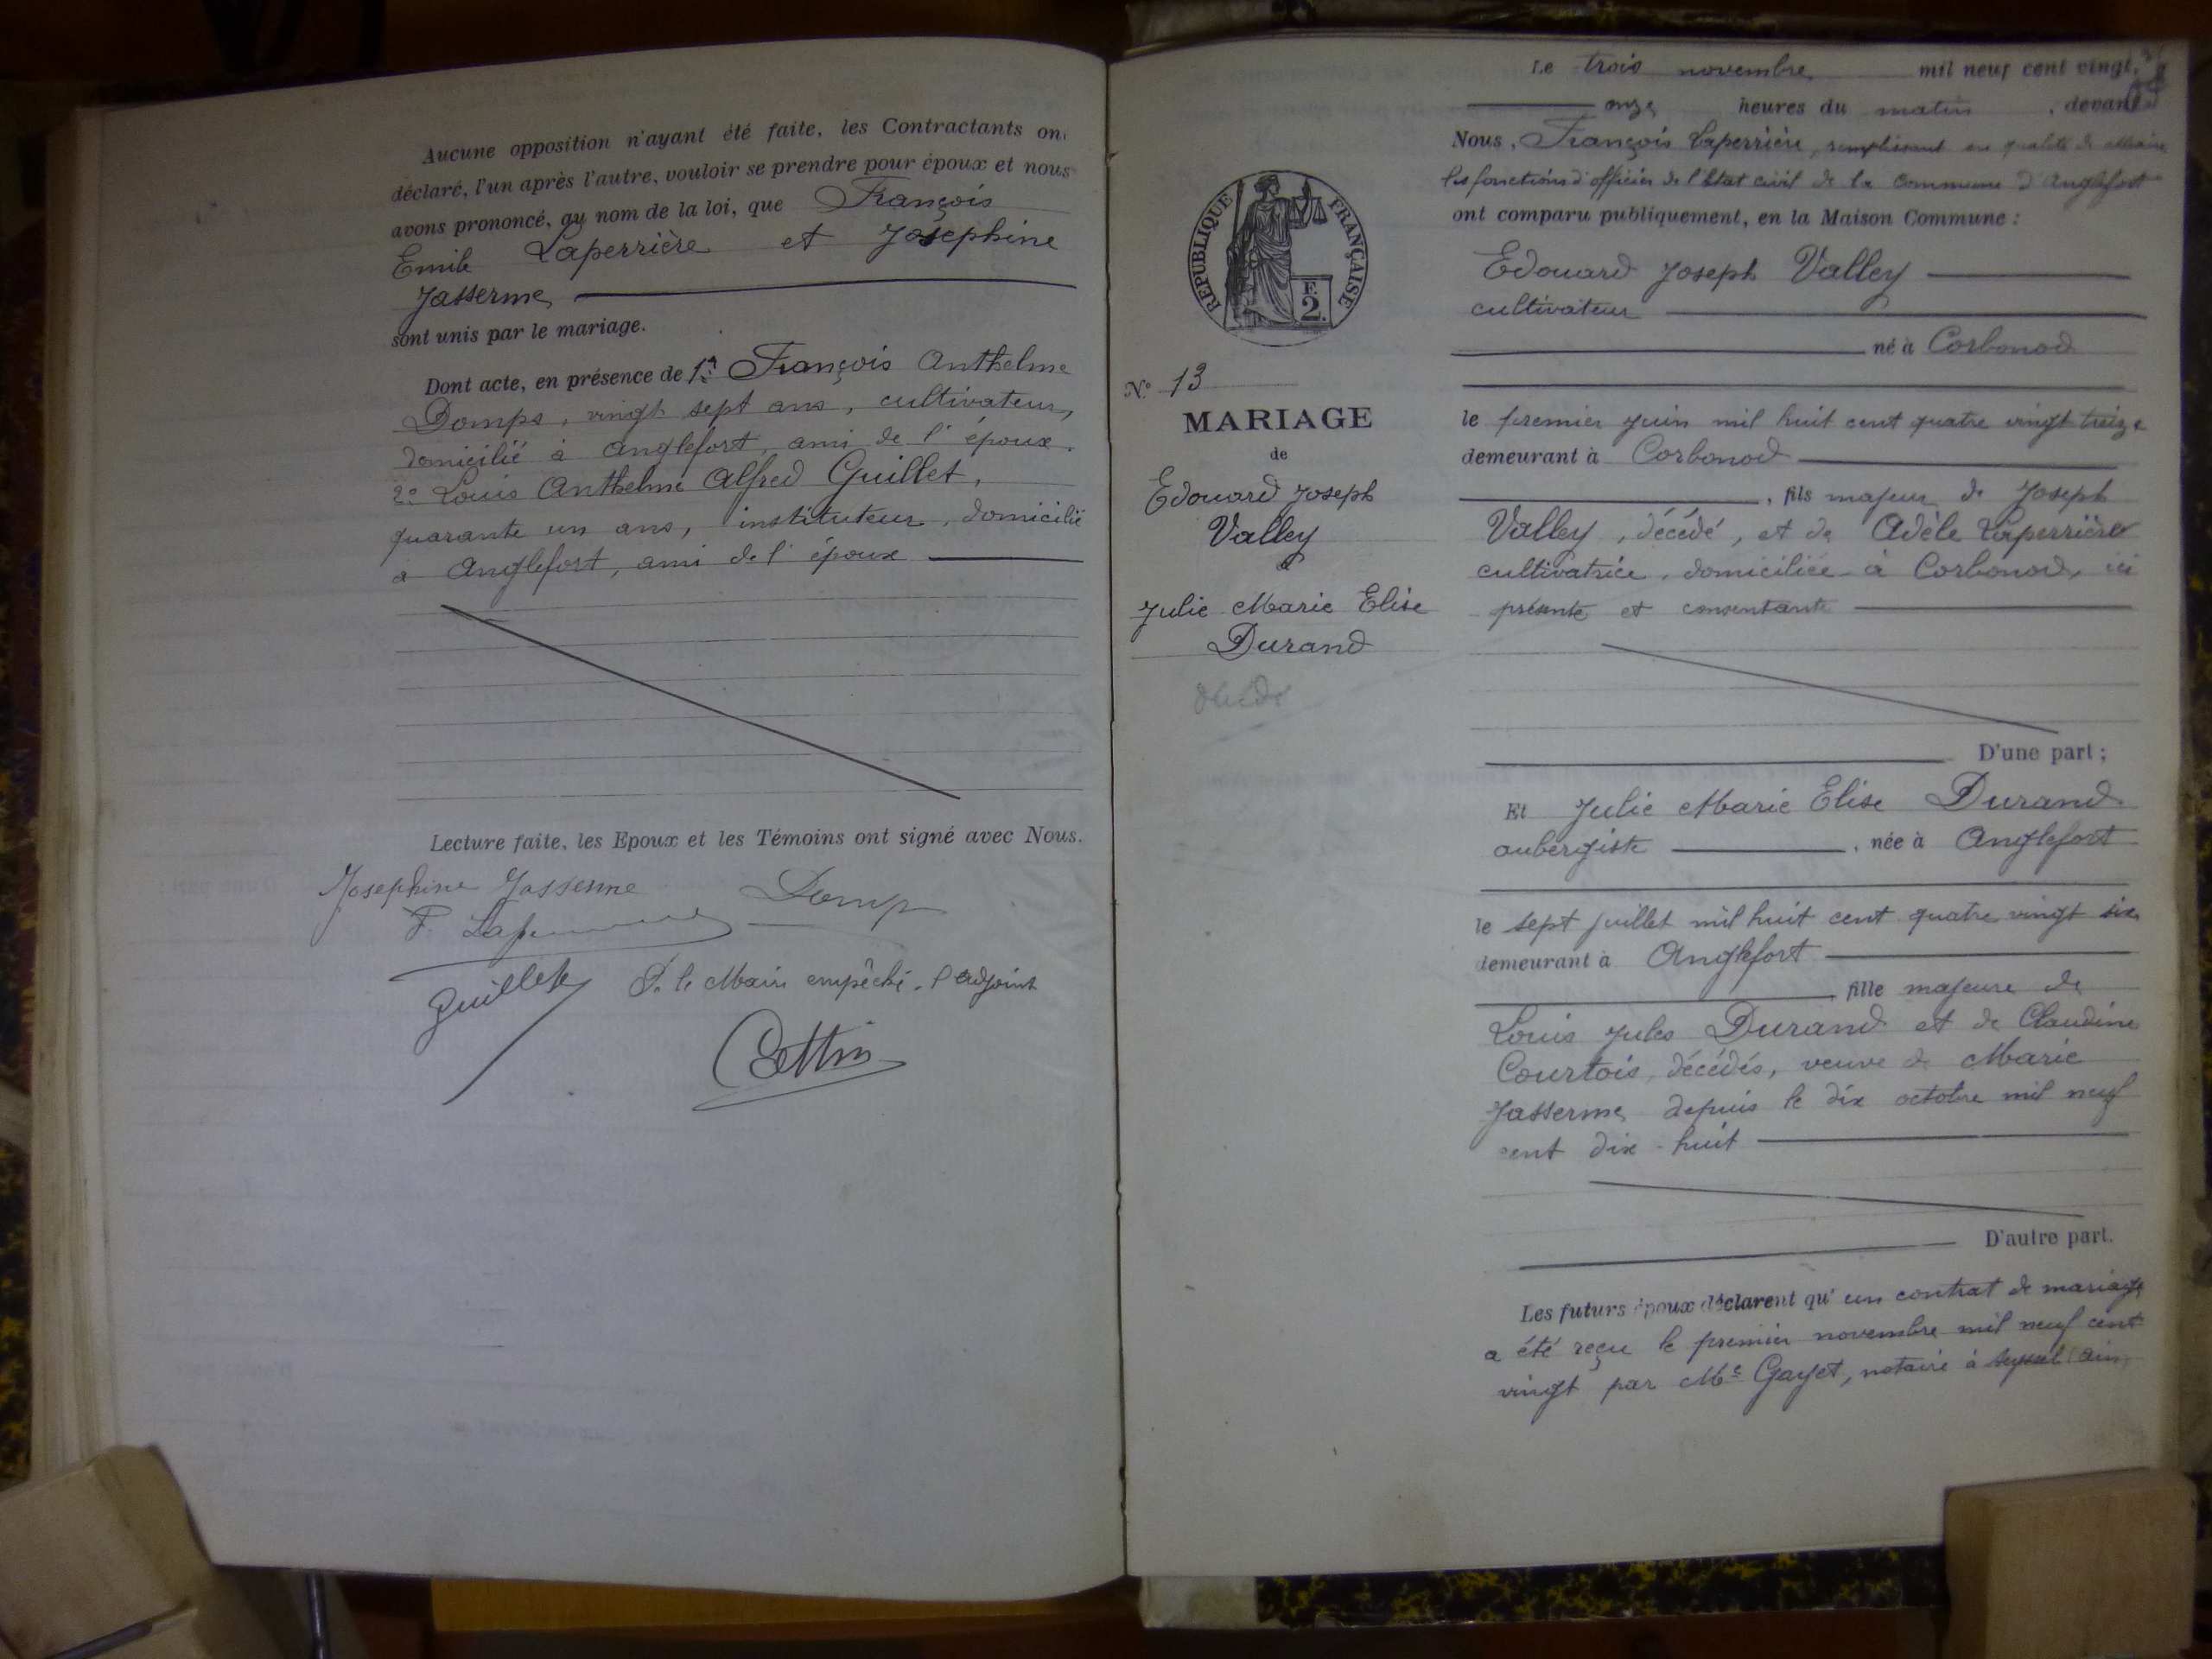 Aucune opposition n'ayant été faite, les Contractants on
déclaré, l'un après l'autre, vouloir se prendre pour époux et nous
avons prononcé, au nom de la loi, que François
Emile Laperrière et Joséphine
Jasserme
sont unis par le mariage.
Dont acte, en présence de 1º François Anthelme
Domps, vingt sept ans, cultivateur,
domicilié à Anglefort, ami de l'époux.
2º Louis Anthelme Alfred Guillet,
quarante un ans, instituteur, domicilié
à Anglefort, ami de l'époux
Lecture faite, les Epoux et les Témoins ont signé avec Nous.
Josephine Jasserme Domp
F. Laperrière
Guillet P. le Maire empêché, l'adjoint
Le trois novembre mil neuf cent vingt,
onze heures du matin, devant
Nous, François Laperrière, remplissant en qualité de Maire
les fonctions d'officier de l'Etat civil de la commune d'Anglefort
ont comparu publiquement, en la Maison Commune :
Edouard Joseph Valley
cultivateur
né à Corbonod
le premier juin mil huit cent quatre vingt treize
demeurant à Corbonod
, fils majeur de Joseph
Valley, décédé, et de Adèle Laperrière
cultivatrice, domiciliée à Corbonod, ici
présente et consentante
D'une part ;
Et Julie Marie Elise Durand
aubergiste, née à Anglefort
le sept juillet mil huit cent quatre vingt six
demeurant à Anglefort
, fille majeure de
Louis Jules Durand et de Claudine
Courtois, décédés, veuve de Marie
Jasserme depuis le dix octobre mil neuf
cent dix-huit
D'autre part.
Les futurs époux déclarent qu'un contrat de mariage
a été reçu le premier novembre mil neuf cent
vingt par Me Gayet, notaire à Seyssel (Ain
REPUBLIQUE FRANÇAISE
F.
2.
Nº 13
MARIAGE
de
Edouard Joseph
Valley
&
Julie Marie Elise
Durand